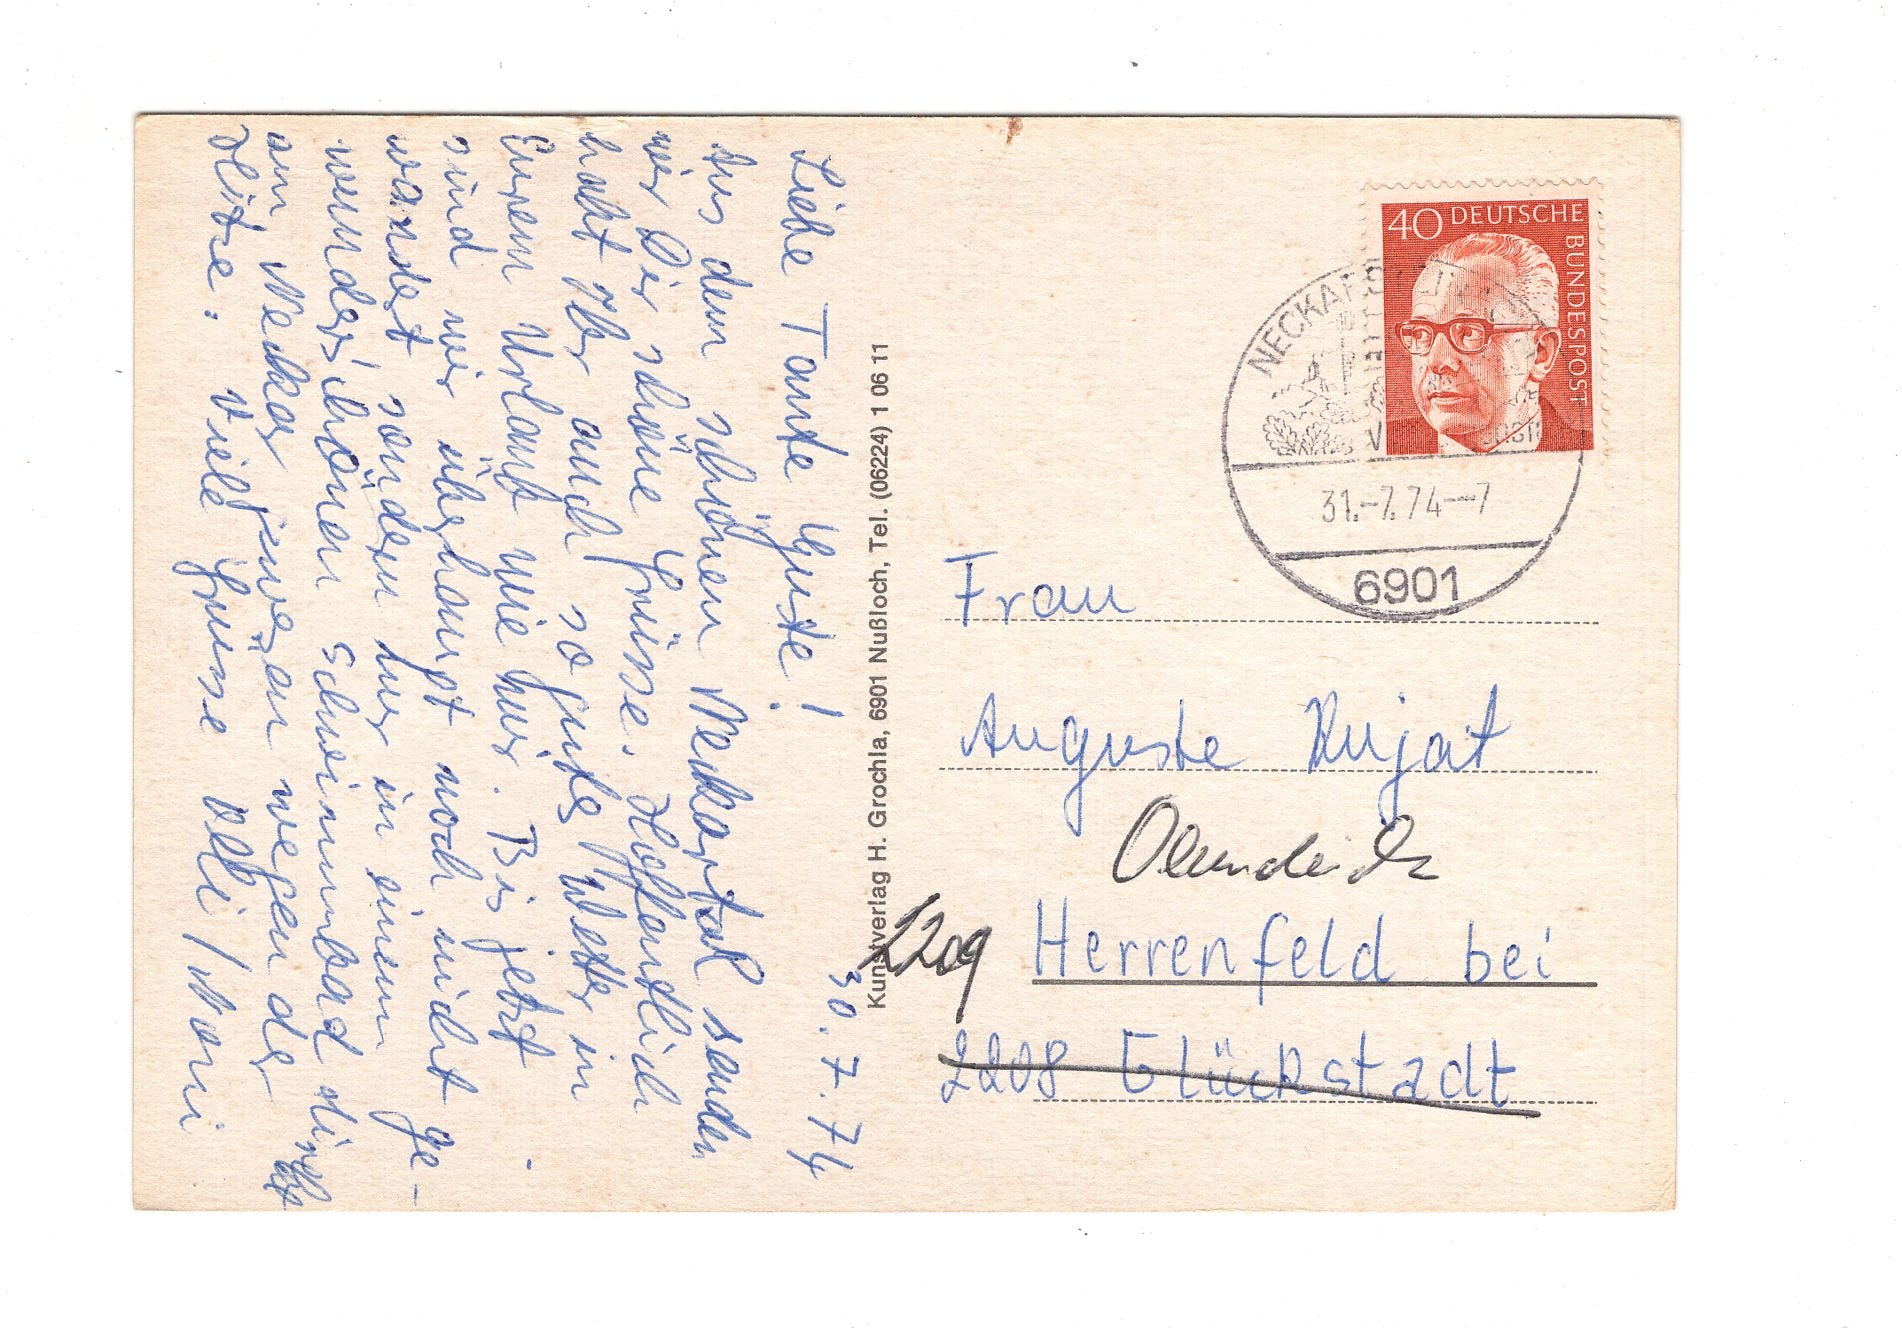 30.7.74
Liebe Tante Guste!
Aus dem schönen Neckartal senden
wir Dir schöne Grüsse. Hoffentlich
habt Ihr auch so gutes Wetter in
Eurem Urlaub wie hier. Bis jetzt
sind wir überhaupt noch nicht ge-
wandert sondern nur in einem
wunderschönen Schwimmbad direkt
am Neckar gewesen wegen der
Hitze. Viele Grüsse Olli /
Kunstverlag H. Grochla, 6901 Nußloch, Tel. (06224) 1 06 11
40 DEUTSCHE
BUNDESPOST
31.-7.74--7
6901
Frau
Auguste Kujat
2209 Herrenfeld bei
2208 Glückstadt